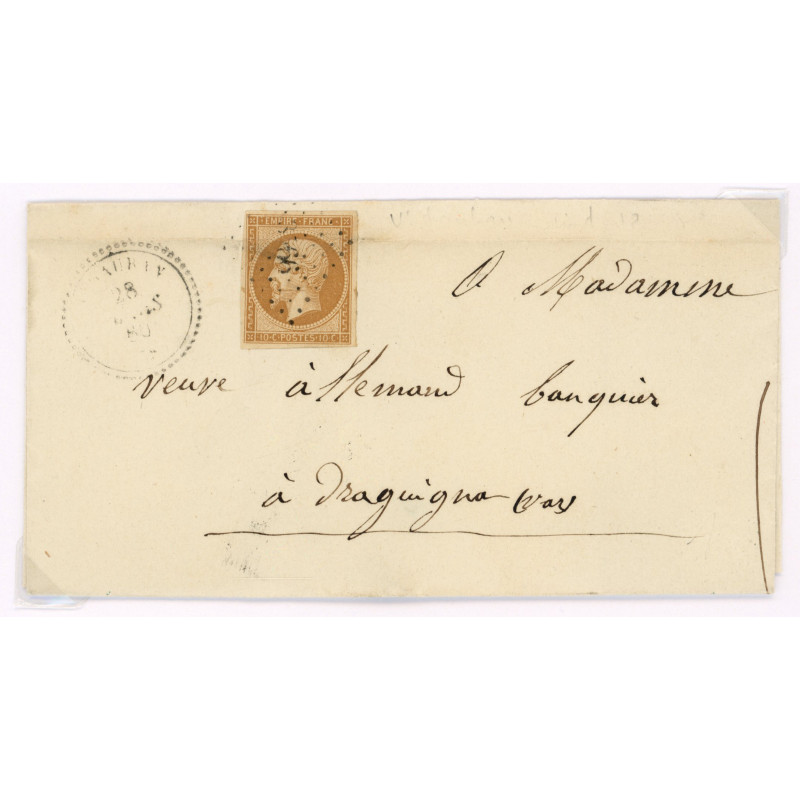 EMPIRE FRANC
10 C POSTES 10 C
28
MARS
60
A Madamme
veuve àllemand banquier
à draguignan (var)